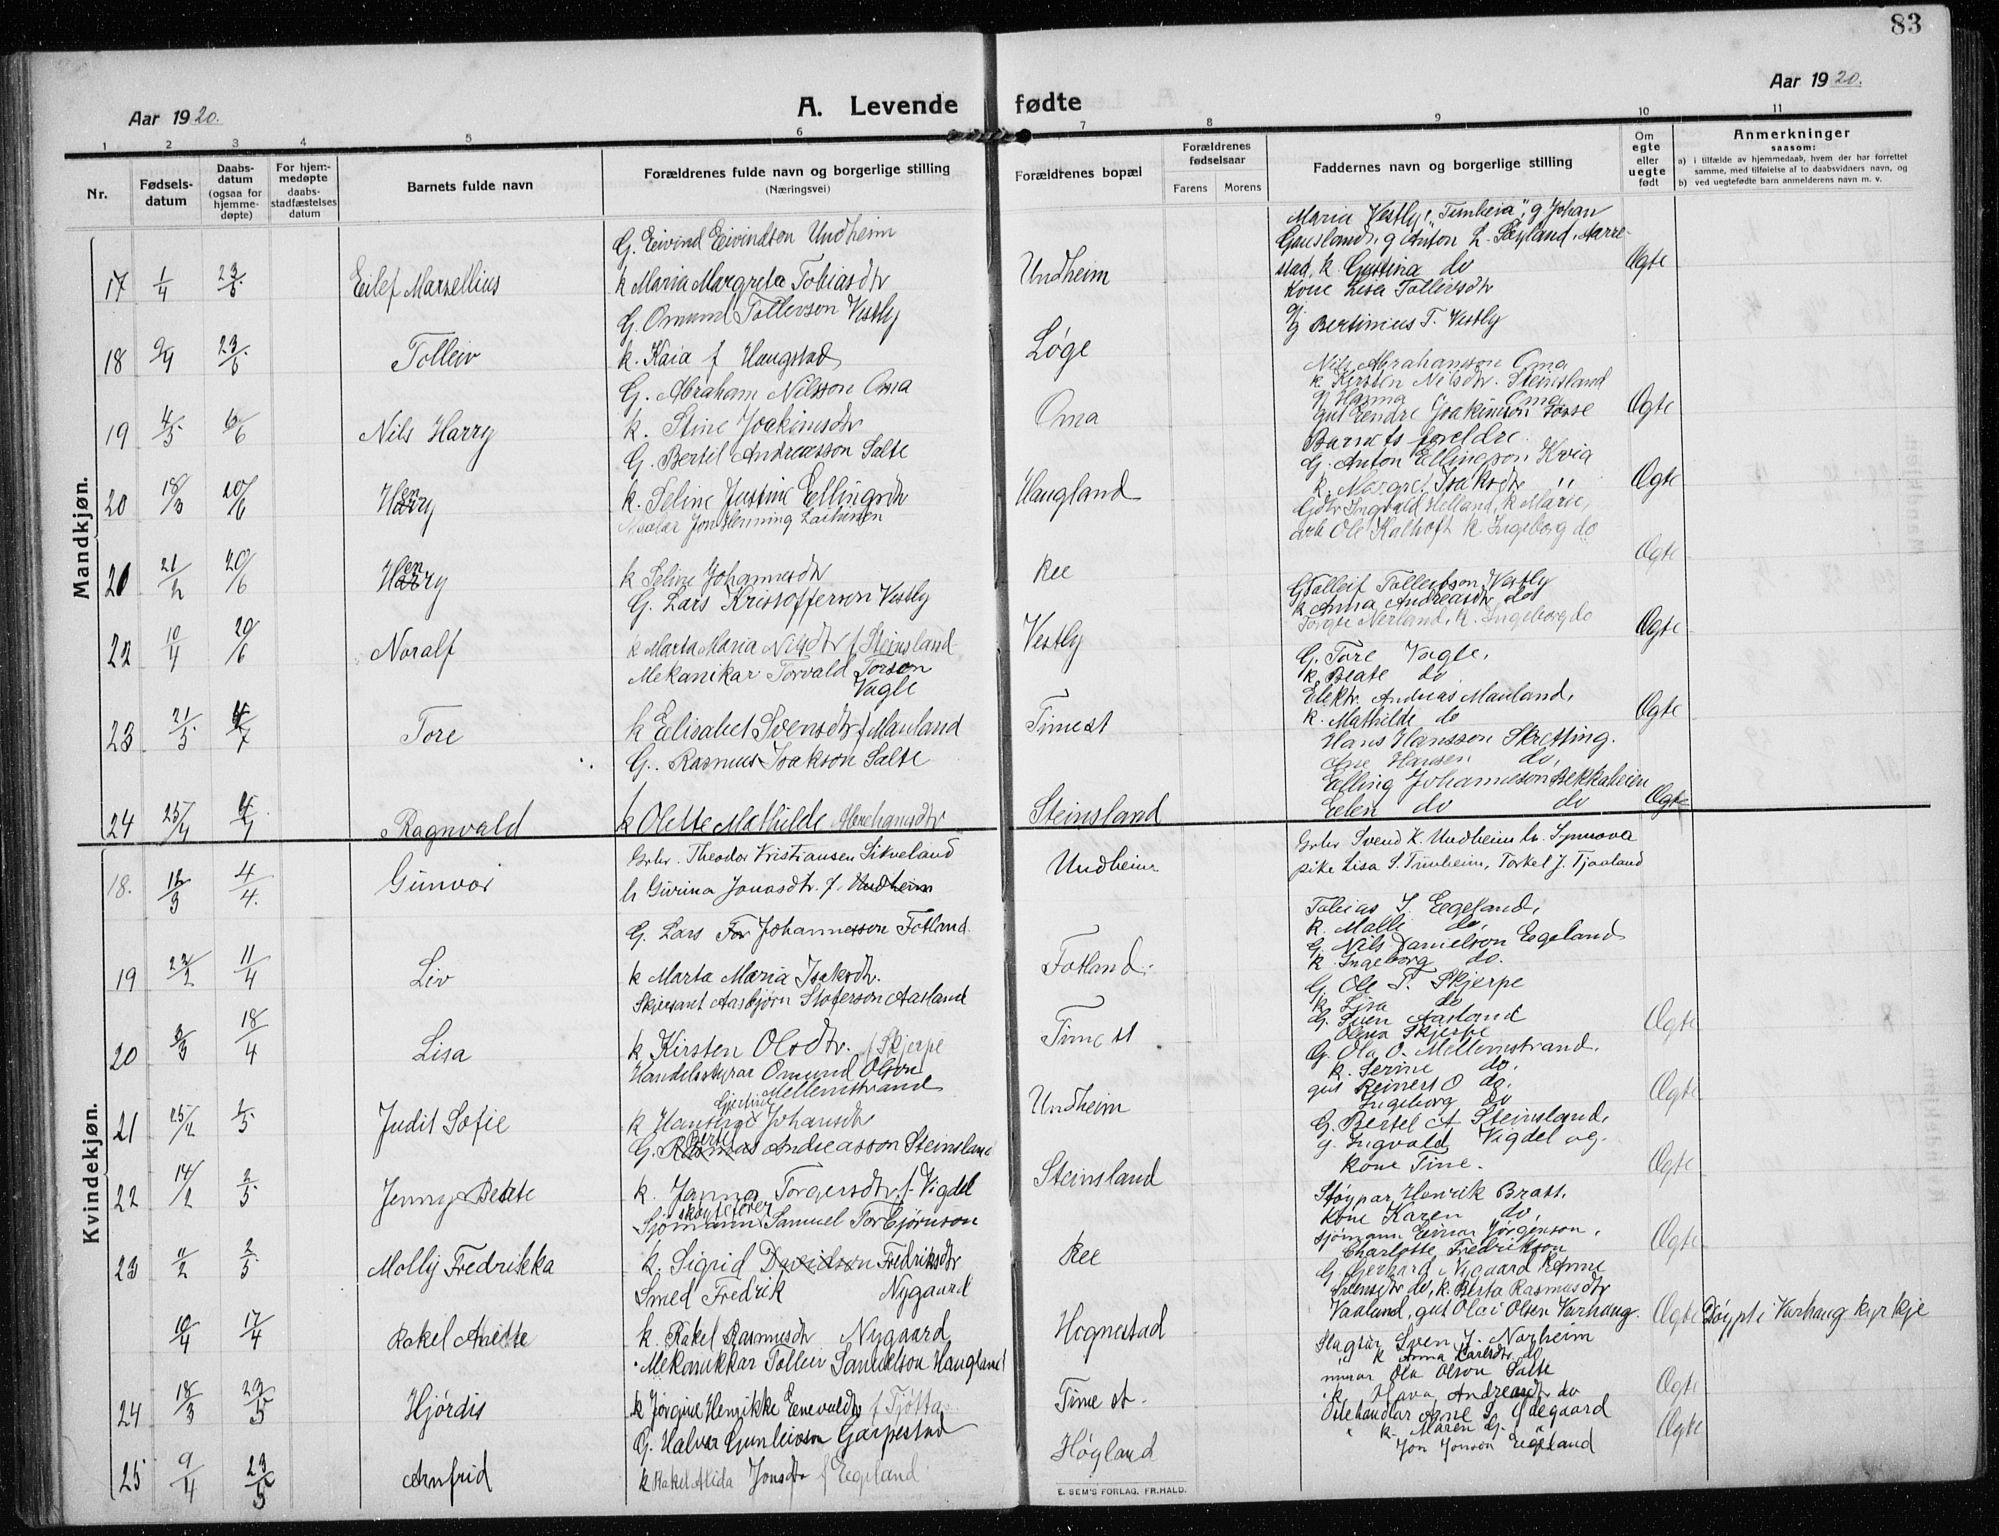 83
Aar 1920.
A. Levende fødte
Aar 1920.
1 2 3 4 5 6 7 8 9 10 11
Nr.
Fødsels-
datum
Daabs-
datum
(ogsaa for
hjemme-
døpte)
For hjem-
medøpte
daabs-
stadfæstelses
datum
Barnets fulde navn
Forældrenes fulde navn og borgerlige stilling
(Næringsvei)
Forældrenes bopæl
Forældrenes
fødselsaar
Farens Morens
Faddernes navn og borgerlige stilling
Om
egte
eller
uegte
født
Anmerkninger
saasom:
a) i tilfælde av hjemmedaab, hvem der har forrettet
samme, med tilføielse af to daabsvidners navn, og
b) ved uegtefødte barn anmelderens navn m. v.
Mandkjøn.
17 1/4 Eilef Marsellius
G. Eivind Eivindson Undheim
k Maria Margreta Tobiasdtr
Undheim
Maria Vestly, "Timheia", g Johan
Gausland, g Anton L. Søyland, Aarre-
stad, k. Gustina do
Ægte
18 Tolleiv
G. Omund Tollevson Vestly
k. Kaia f Haugstad
Løge
Kone Lisa
Bertinius T. Vestly
19 4/5 6/6 Nils Harry
G. Abraham Nilsson Oma
k. Stine Joakimsdtr
Oma
Nils Abrahamsson Oma
k. Kirsten Nilsdtr. Steinsland
Hanna Oma
gut Endre Joakimson
Ægte
20 18/3 20/6 Henry
G. Bertil Andreasson Salte
k. Seline Justine Ellingsdtr
Haugland
Barnets foreldre.
G. Anton Ellingson Hvia
k. Margret Isaksdtr
Ægte
21 21/2 20/6 Henry
Maalar Jon Henning
k Seline Johannesdtr
Ree
Gdbr Ingvald Helland, k Marie,
arb Ole Kalhoft k. Ingeborg do
Ægte
22 10/4 20/6 Noralf
G. Lars Kristofferson Vestly
k Marta Maria Nilsdtr f Steinsland
Vestly
G Tolleif Tolleifson Vestly
k Anna Andreasdtr do
Torger Nerland, k. Ingeborg do
Ægte
23 21/5 4/7 Tore
Mekanikar Torvald Torson
Vagle
k Elisabet Svensdtr f Mauland
Time st
G. Tore Vagle.
k. Beate do
Elektr. Andreas Mauland,
k. Mathilde do
Ægte
24 25/4 Ragnvald
G. Rasmus Isakson Salte
k Olette Mathilde Abrahamsdtr
Steinsland
Hans Hansson Skretting.
Ane Hansen do,
Elling Johanneson Bekkaheim
Elen do do
Ægte
Kvindekjøn.
18. 12/3 4/4. Gunvor
Grbr. Theodor Kristiansen Sikveland
h Givrina Jonasdtr. f. Undheim
Undheim
Grbr Svend K. Undheim h. Synnøva
pike Lisa S. Timheim, Torkel J. Tjaaland
19 22/2 11/4 Liv
G. Lars Johannesson Fotland
k Marta Maria Isaksdtr.
Fotland.
Tobias I. Egeland,
k. Malli do,
G. Nils Danielson Egeland
k Ingeborg do.
20 18/4 Lisa
Aasbjørn Stoferson Aasland
k Kirsten Olsdtr. f Skjerpe
Time st
G. Ole T. Skjerpe
k. Lisa do
G. Sven Aasland
Olena Skjerpe
Ægte
21 25/2 2/5 Judit Sofie
Handelsstyrar Omund Olson
Mellemstrand
k Hansine Gjertine Johansdtr
Undheim
G. Ola O. Mellemstrand.
k. Serine do.
gut Reinert O do.
Ingeborg do
Ægte
22 14/2 2/5 Jenny Beate
G. Bertel Andreasson Steinsland
k. Janna Torgersdtr. f. Vigdel
Steinsland
G. Bertel A Steinsland,
g. Ingvald Vigdel og
kone Tine.
Ægte
23 11/2 2/5 Molly Fredrikka
Sjømann Samuel Torbjørnson
k. Sigrid Davidson Fredriksdtr
Ree
Støypar Henrik Bratt.
Kone Karen do,
sjømann Einar Jørgenson.
Charlotte Fredrikson
Ægte
10/4 17/4 Rakel Anette
Smed Fredrik Nygaard
k. Rakel Rasmusdtr Nygaard
Hognestad
G. Gerhard Nygaard
Svensdtr do, k. Berta Rasmusdtr
Vaaland, gut Olai Olsen Varhaug.
Ægte
Døypt i Varhaug kyrkje
24 18/3 29/5 Hjørdis
Mekanikkar Tolleiv Samuelson Haugland
k Jørgine Henrikke Enevaldtr f Tjøtta
Time st.
Slagtar Sven J. Norheim
" k Anna Karlsdtr do
murar Ola Olson Salte
k. Hava Andreasdtr do
Ægte
25 9/4 23/5 Arnfrid
G. Halvor Gunleivson Garpestad
k Rakel Alida Jonsdtr f Egeland
Høgland
Ostehandlar Arne G. Ødegaard
" k. Maren G. "
Jon Jonsen Egeland
Ægte
E. SEM'S FORLAG. FR.HALD.